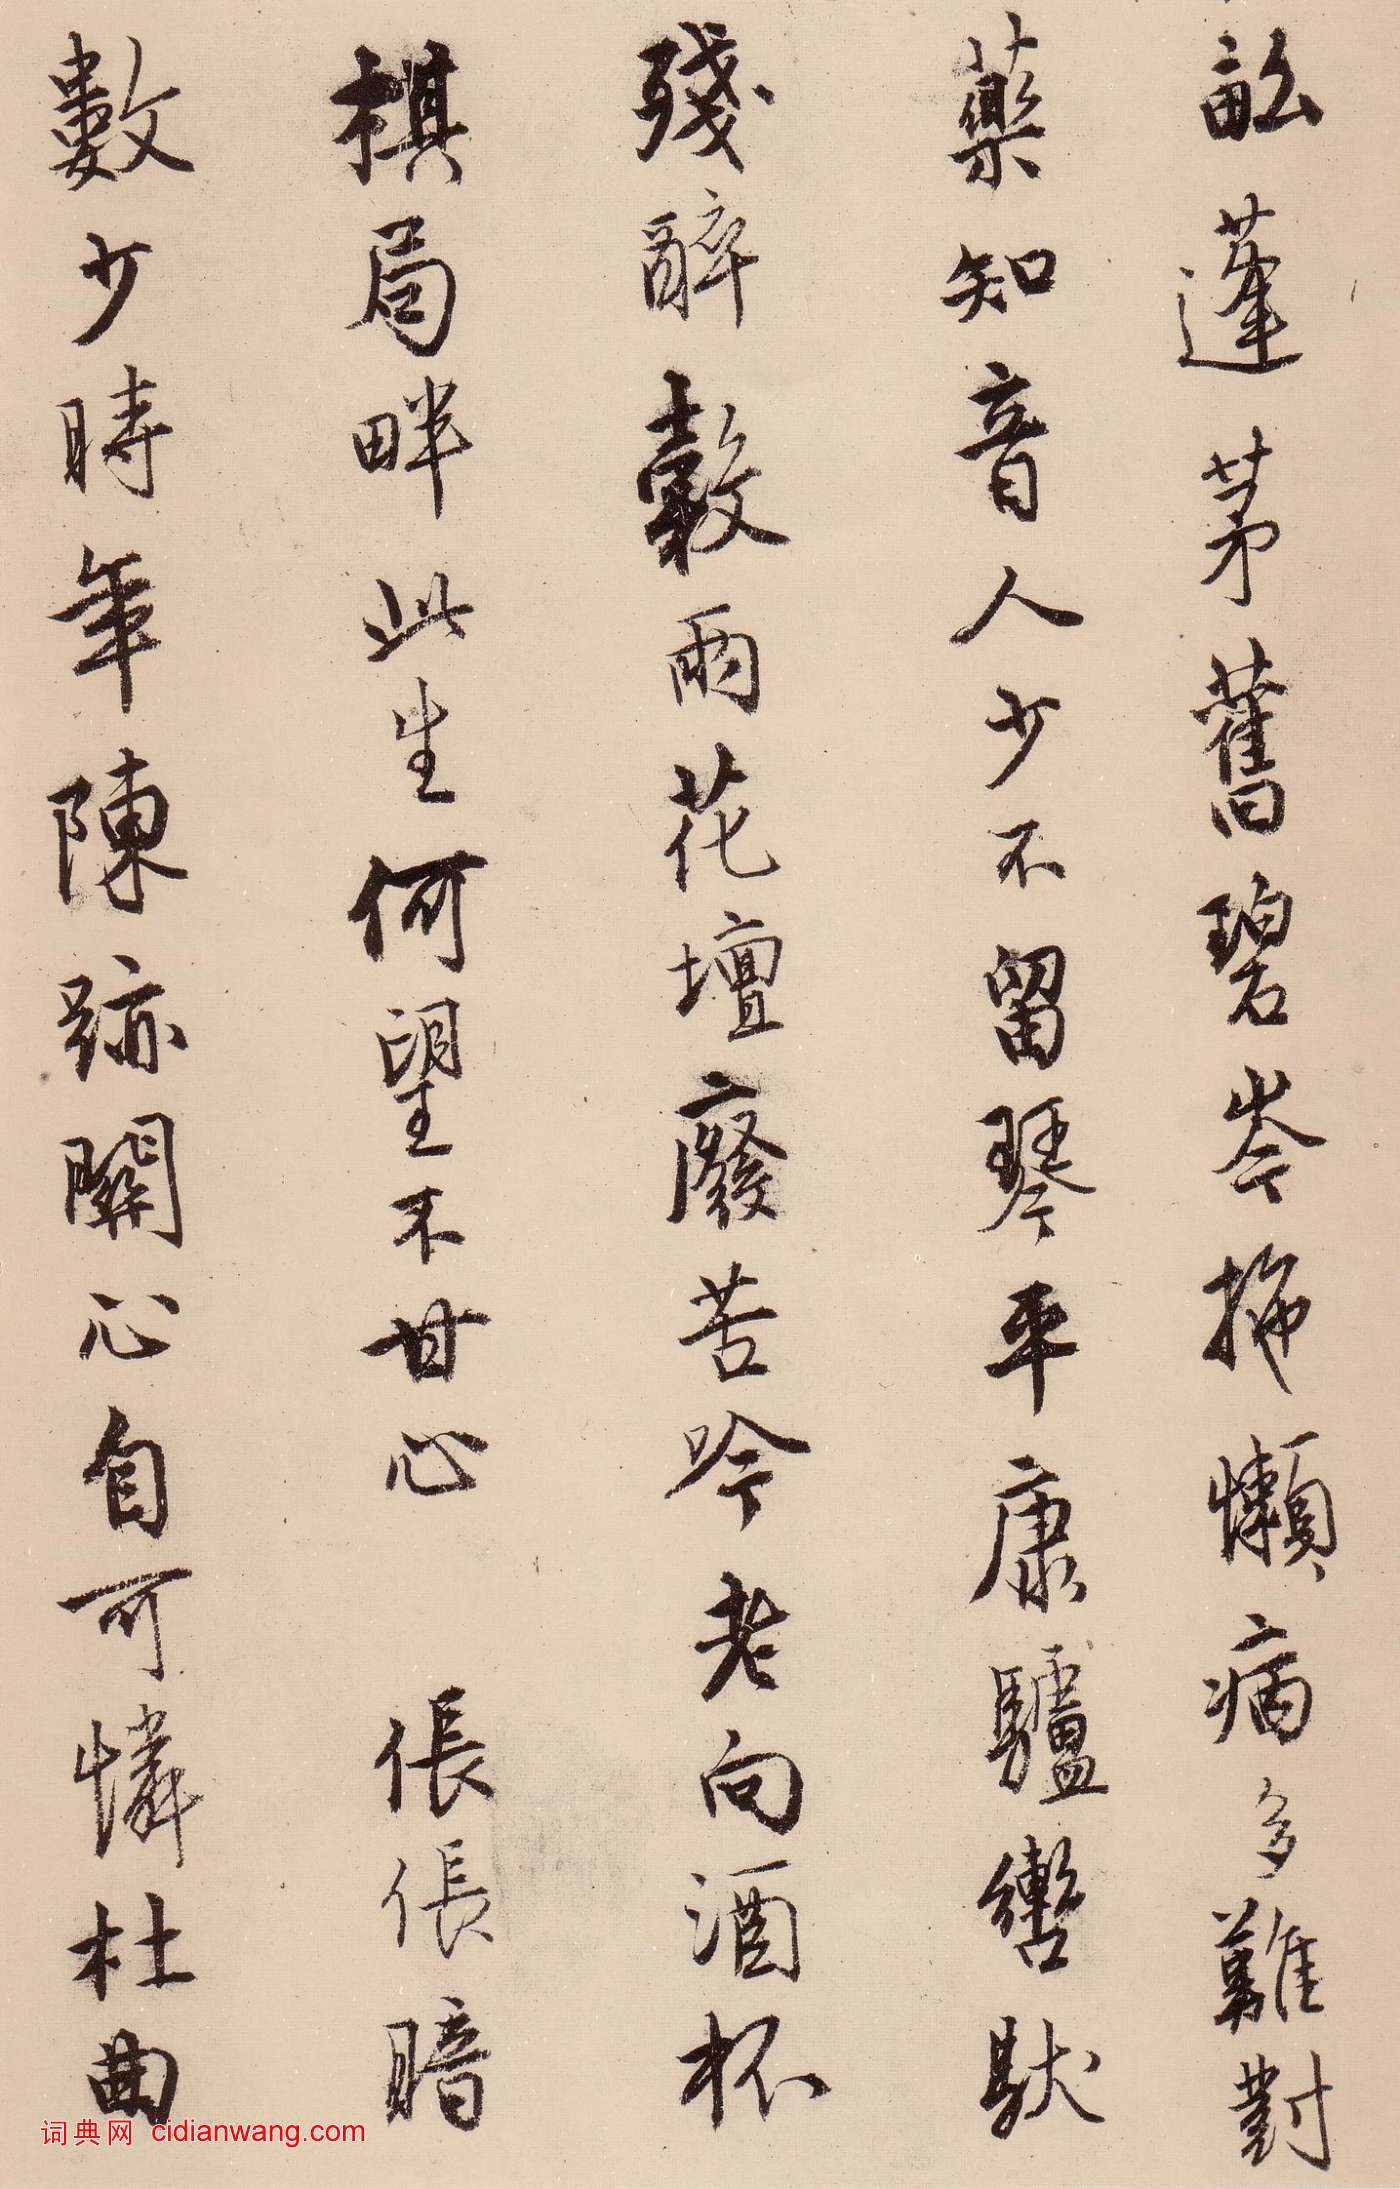 畝蓬茅舊碧岑拖懶病多難對
藥知音人少不留琴平康驢轡馱
殘醉穀雨花壇廢苦吟老向酒杯
棋局畔此生何望不甘心 倀倀暗
數少時年陳跡關心自可憐杜曲
词典网 cidianwang.com